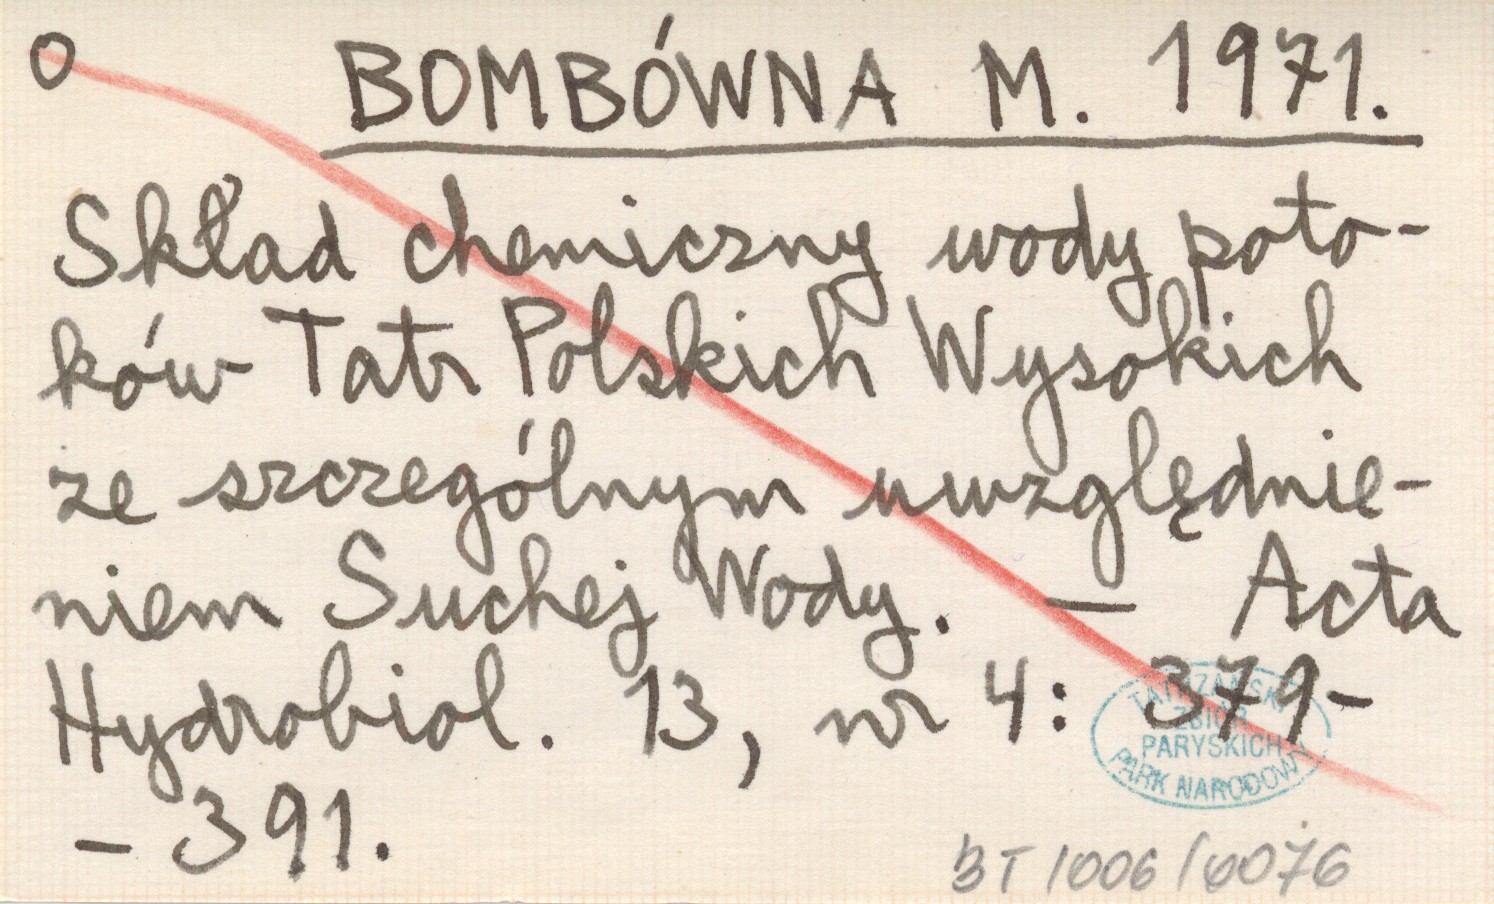 O BOMBÓWNA M. 1971.
Skład chemiczny wody poto-
ków Tatr Polskich Wysokich
ze szczególnym uwzględnie-
niem Suchej Wody. — Acta
Hydrobiol. 13, nr 4: 379-
- 391.
TATRZAŃSKI
ZBIÓR
PARYSKICH
PARK NARODOWY
BT/006/0076